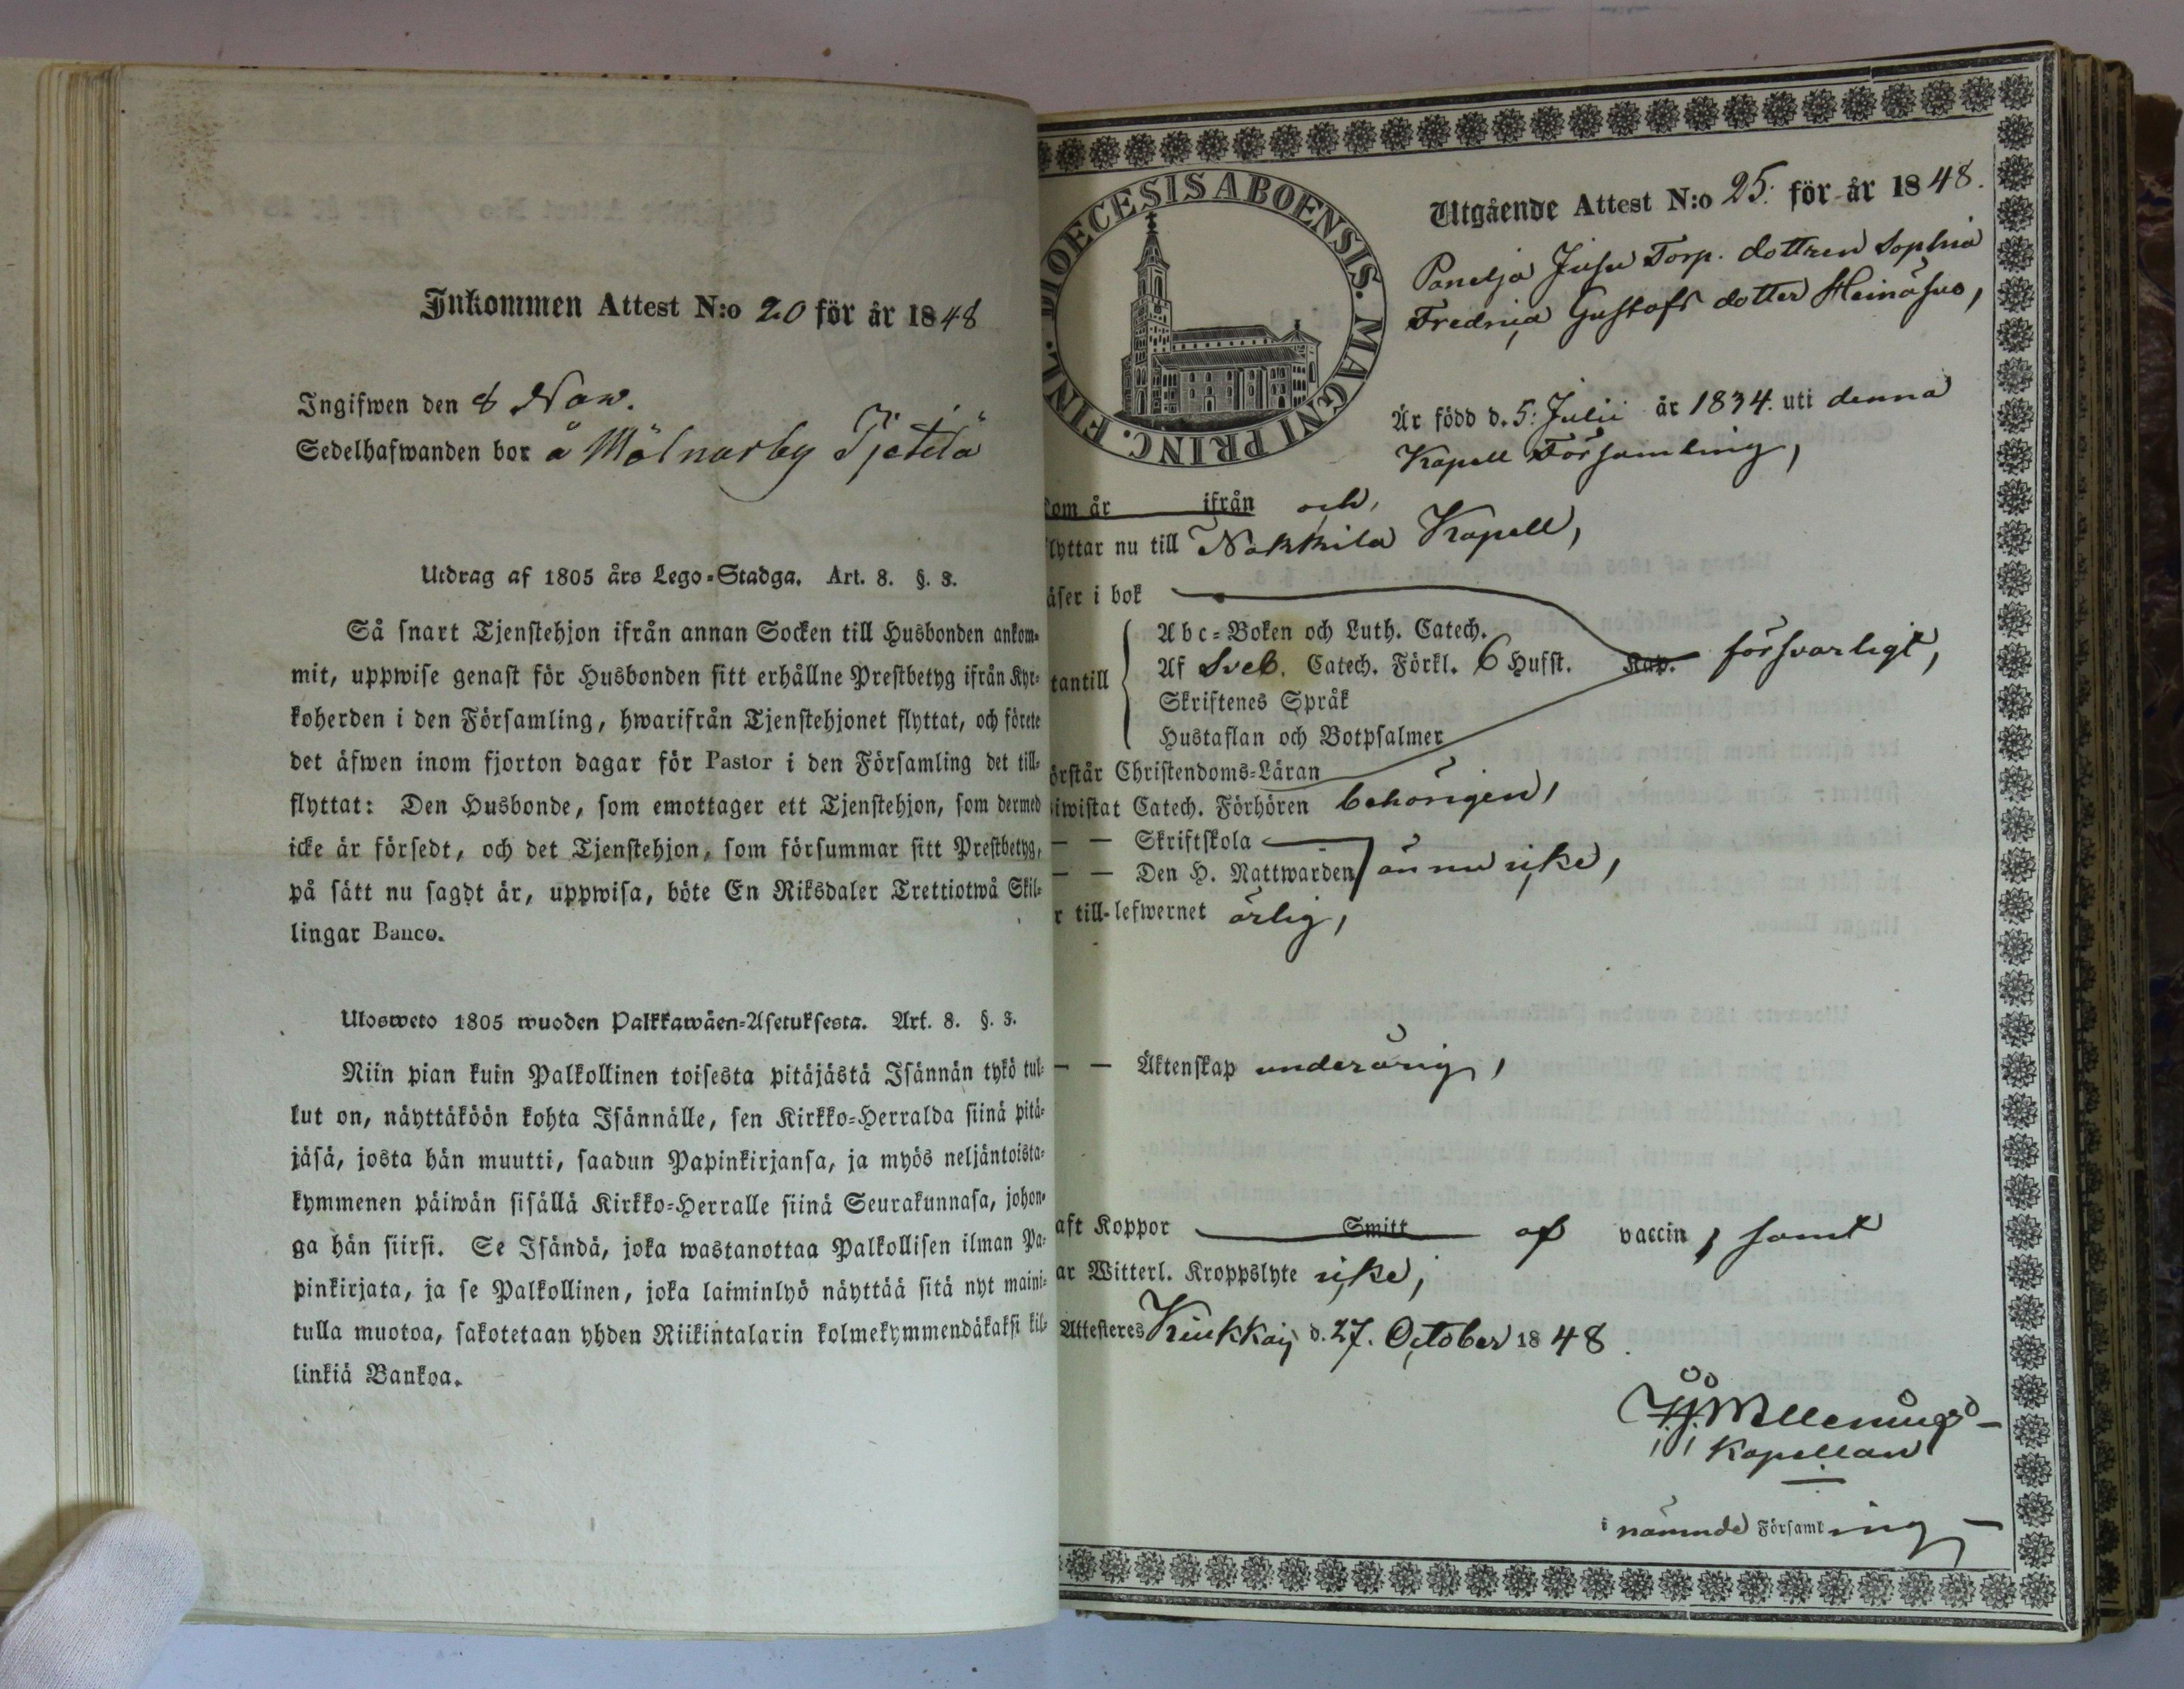 Inkommen Attest N:o 20 för år 1848
Ingifwen den 8 Nov.
Sedelhafwanden bor å Mölnarby Tjetilä
Utdrag af 1805 års Lego-Stadga. Art. 8. §. 3.
Så snart Tjenstehjon ifrån annan Socken till Husbonden ankom-
mit, uppwise genast för Husbonden sitt erhållne Prestbetyg ifrån Kyr-
koherden i den Församling, hwarifrån Tjenstehjonet flyttat, och förete
det äfwen inom fjorton dagar för Pastor i den Församling det till-
flyttat: Den Husbonde, som emottager ett Tjenstehjon, som dermed
icke är försedt, och det Tjenstehjon, som försummar sitt Prestbetyg,
på sätt nu sagdt är, uppwisa, böte En Riksdaler Trettiotwå Skil-
lingar Banco.
Ulosweto 1805 wuoden Palkkawäen-Asetuksesta. Art. 8. §. 3.
Niin pian kuin Palkollinen toisesta pitäjästä Isännän tykö tul-
lut on, näyttäköön kohta Isännälle, sen Kirkko-Herralda siinä pitä-
jäsä, josta hän muutti, saadun Papinkirjansa, ja myös neljäntoista-
kymmenen päiwän sisällä Kirkko-Herralle siinä Seurakunnasa, johon-
ga hän siirsi. Se Isändä, joka wastanottaa Palkollisen ilman Pa-
pinkirjata, ja se Palkollinen, joka laiminlyö näyttää sitä nyt maini-
tulla muotoa, sakotetaan yhden Riikintalarin kolmekymmendäkaksi kil-
linkiä Bankoa.
DIOECESIS ABOENSIS. MAGNI PRINC. FINL.
Utgående Attest N:o 25. för år 1848.
Panelja Jusu Torp. dottren Sophia
Fredrica Gustafs dotter Heinäsuo,
Är född d. 5: Julii år 1834. uti denna
Kapell Församling,
kom år ifrån och,
lyttar nu till Nakkila Kapell,
äser i bok
tantill
Abc-Boken och Luth. Catech.
Af Sveb. Catech. Förkl. 6 Hufst. Kap. försvarligt,
Skriftenes Språk
Hustaflan och Botpsalmer
örstår Christendoms-Läran
iwistat Catech. Förhören behörigen,
— — Skriftskola
— — Den H. Nattwarden ännu icke,
r till lefwernet ärlig,
— — Äktenskap underårig,
aft Koppor Smitt af vaccin, samt
ar Witterl. Kroppslyte icke,
Attesteres Kiukkais d. 27. October 1848.
Kapellan
i nämnde Församling